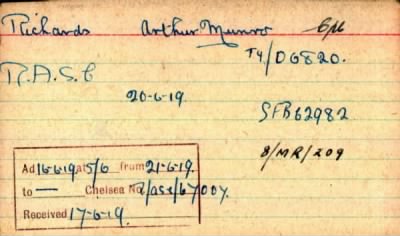 Richards Arthur Munro Cpl
T4/D6820.
R.A.S.C
20-6-19.
SFB62982
8/MR/209
Ad 16-6-19 at 5/6 from 21-6-19.
to — Chelsea No /67004.
Received 17-6-19.